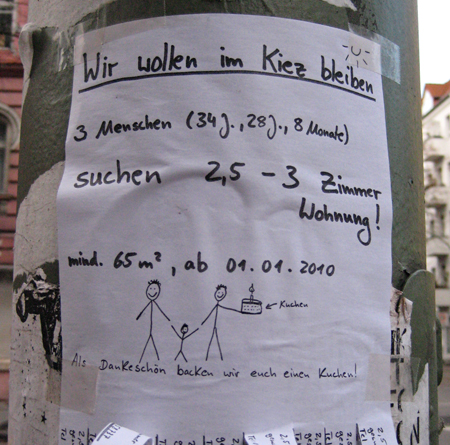 Wir wollen im Kiez bleiben
3 Menschen (34 J., 28 J., 8 Monate)
suchen 2,5 – 3 Zimmer
Wohnung!
mind. 65 m², ab 01.01.2010
← Kuchen
Als Dankeschön backen wir euch einen Kuchen!